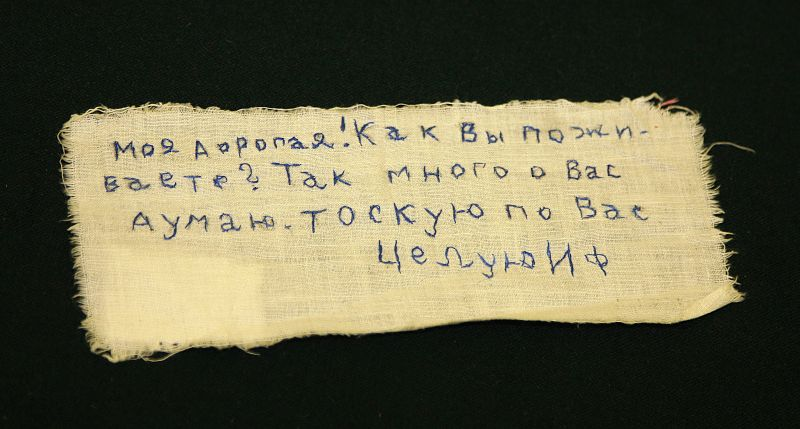 Моя дорогая! Как Вы пожи-
ваете? Так много о Вас
думаю. Тоскую по Вас
Целую ИФ